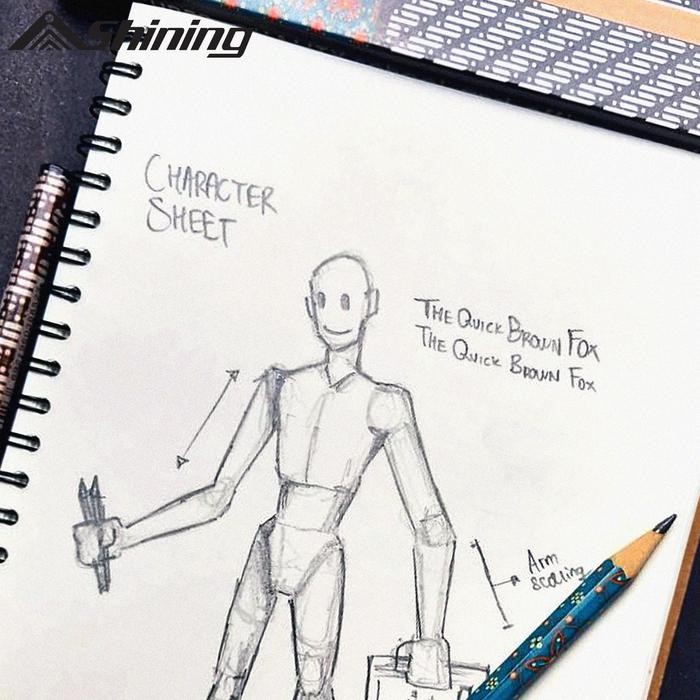 Shining
CHARACTER
SHEET
THE QUICK BROWN FOX
THE QUICK BROWN FOX
Arm
scaling